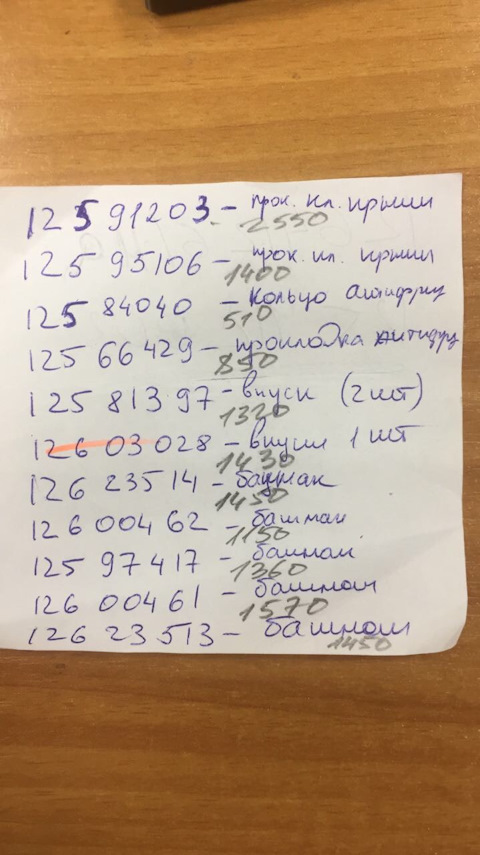 12591203 - прок. кл. крыши
2550
12595106 - прок. кл. крыши
1400
12584040 - Кольцо антифриз
510
12566429 - прокладка антифриз
850
12581397 - впуск (2 шт)
1320
12603028 - впуск 1 шт
1430
12623514 - башмак
1450
12600462 - башмак
1150
12597417 - башмак
1360
12600461 - башмак
1570
12623513 - башмак
1450